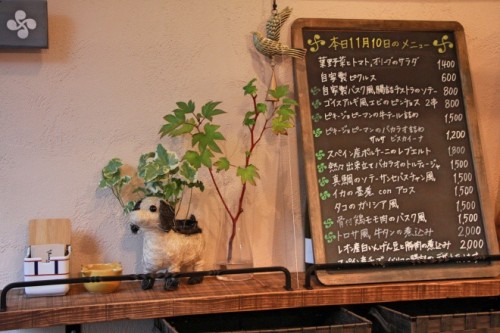 本日11月10日のメニュー
葉野菜とトマト、オリーブのサラダ 1400
自家製ピクルス 600
自家製バスク風腸詰キストラのソテー 800
ゴイスアルギ風エビのピンチョス 2串 800
ピキージョピーマンの牛テール詰め 1,500
ピキージョピーマンのバカラオ詰め
サルサ ビスカイーナ 1,200
スペイン産ポルチーニのレブエルト 1,800
熱々出来立てバカラオのトルティージャ 1,500
真鯛のソテー、サンセバスチャン風 1,500
イカの墨煮 con アロス 1,500
タコのガリシア風 1,500
骨付鶏モモ肉のバスク風 1,500
トロサ風 牛タンの煮込み 2,000
レオン産白いんげん豆と豚肉の煮込み 2,000